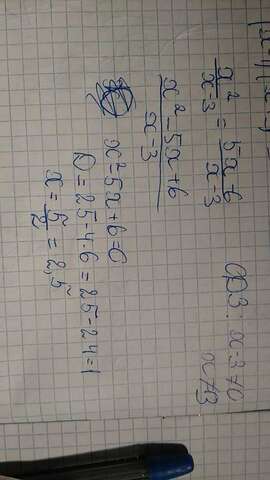 x²/x-3 = 5x-6/x-3
ОДЗ: x-3≠0
x≠3
x²-5x+6/x-3
x²-5x+6=0
D=25-4·6=25-24=1
x=5/2=2,5